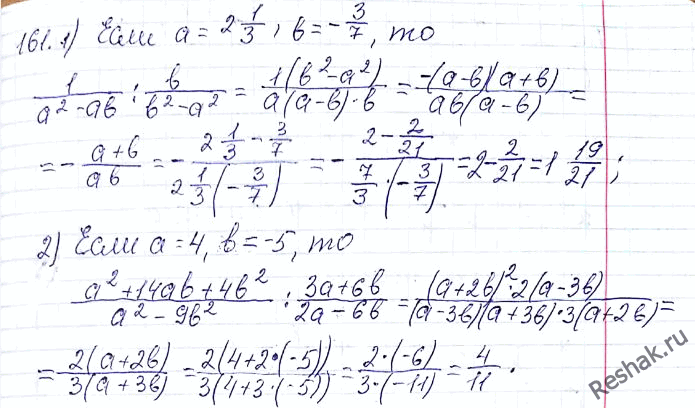 161.1) Если a = 2 1/3, b = -3/7, то
1/(a² - ab) : b/(b² - a²) = 1(b² - a²)/(a(a-b)·b) = -(a-b)(a+b)/(ab(a-b)) =
= - (a+b)/(ab) = - (2 1/3 - 3/7)/(2 1/3(-3/7)) = - (2 - 2/21)/(7/3·(-3/7)) = 2 - 2/21 = 1 19/21;
2) Если a = 4, b = -5, то
(a² + 14ab + 4b²)/(a² - 9b²) : (3a + 6b)/(2a - 6b) = (a+2b)²·2(a-3b)/((a-3b)(a+3b)·3(a+2b)) =
= 2(a+2b)/(3(a+3b)) = 2(4+2·(-5))/(3(4+3·(-5))) = 2·(-6)/(3·(-11)) = 4/11.
Reshak.ru